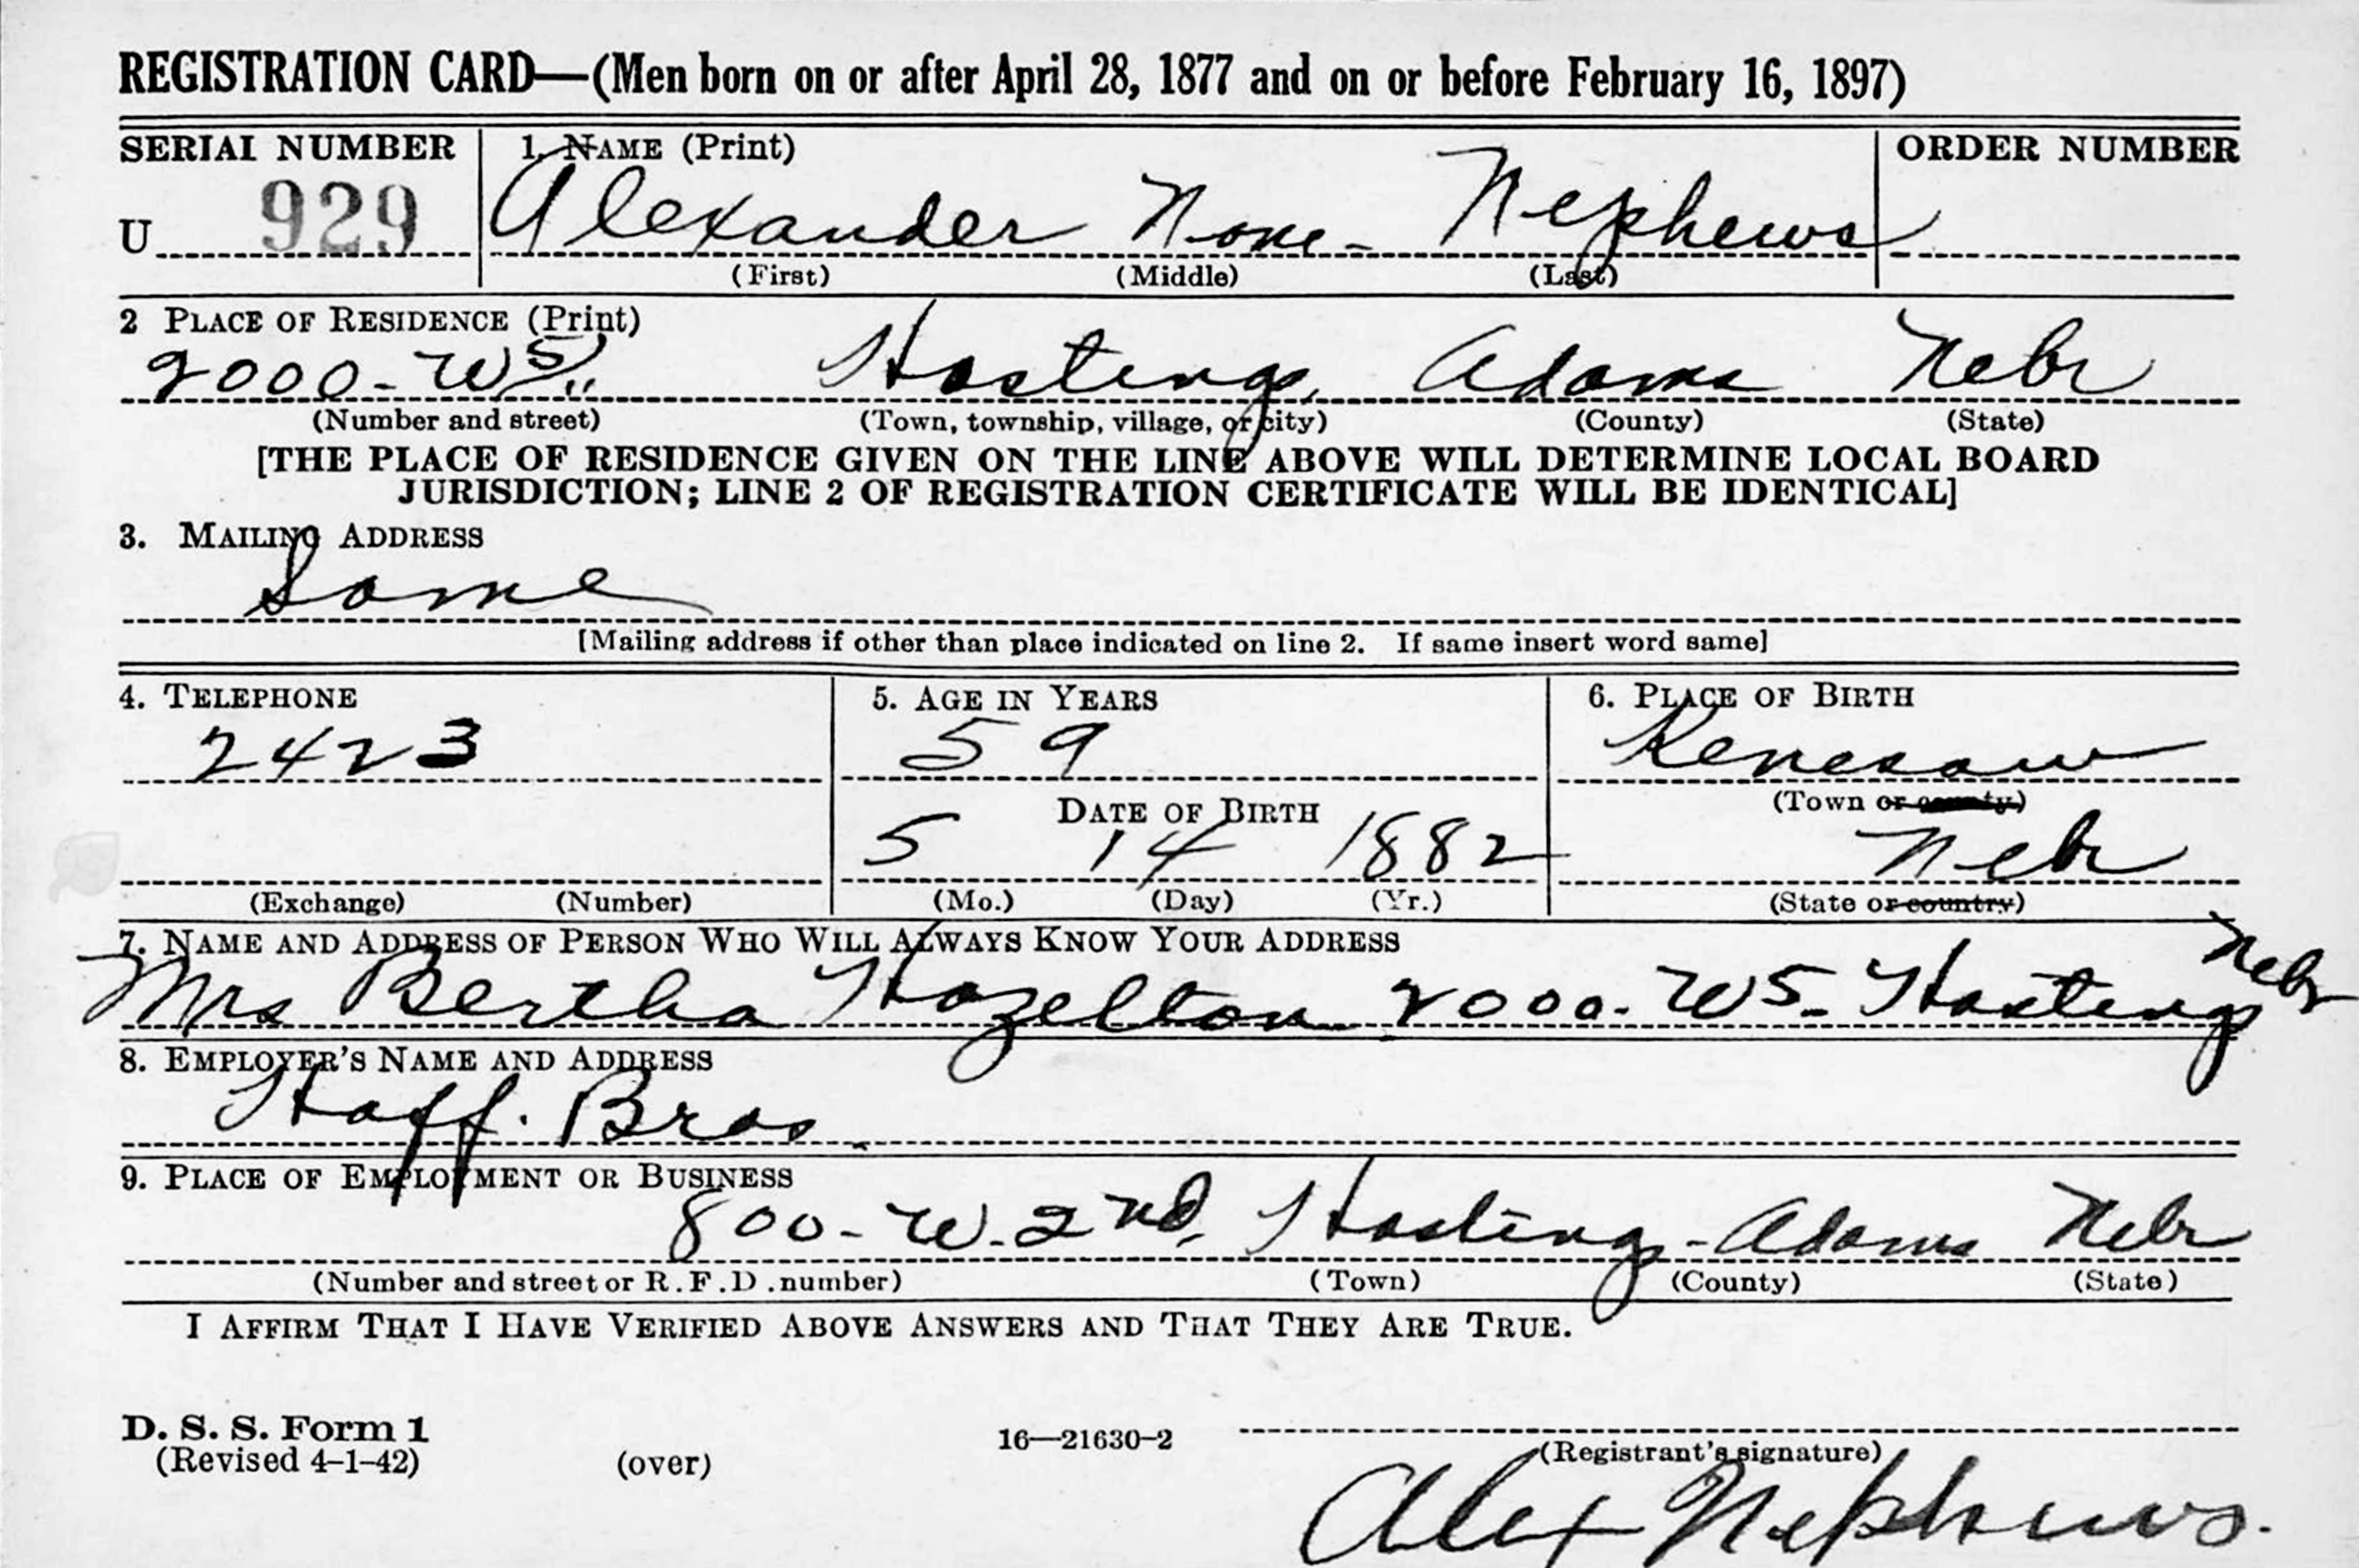 REGISTRATION CARD—(Men born on or after April 28, 1877 and on or before February 16, 1897)
SERIAL NUMBER 1. NAME (Print) ORDER NUMBER
U 929 Alexander None- Nephews
(First) (Middle) (Last)
2 PLACE OF RESIDENCE (Print)
2000-W 5 Hastings Adams Nebr
(Number and street) (Town, township, village, or city) (County) (State)
[THE PLACE OF RESIDENCE GIVEN ON THE LINE ABOVE WILL DETERMINE LOCAL BOARD
JURISDICTION; LINE 2 OF REGISTRATION CERTIFICATE WILL BE IDENTICAL]
3. MAILING ADDRESS
Same
[Mailing address if other than place indicated on line 2. If same insert word same]
4. TELEPHONE 5. AGE IN YEARS 6. PLACE OF BIRTH
2423 59 Kenesaw
DATE OF BIRTH (Town or county)
5 14 1882 Nebr
(Exchange) (Number) (Mo.) (Day) (Yr.) (State or country)
7. NAME AND ADDRESS OF PERSON WHO WILL ALWAYS KNOW YOUR ADDRESS
Mrs Bertha Hazelton 2000-W5-Hastings Nebr
8. EMPLOYER'S NAME AND ADDRESS
Haff. Bros.
9. PLACE OF EMPLOYMENT OR BUSINESS
800-W. 2nd, Hastings-Adams Nebr
(Number and street or R.F.D. number) (Town) (County) (State)
I AFFIRM THAT I HAVE VERIFIED ABOVE ANSWERS AND THAT THEY ARE TRUE.
D. S. S. Form 1
(Revised 4-1-42) (over) 16—21630-2 (Registrant's signature)
Alex Nephews.